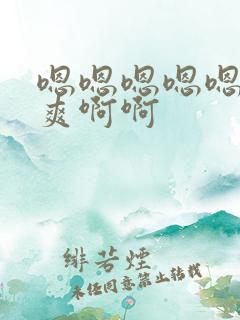 嗯嗯嗯嗯嗯
爽啊啊
绯若烟
未经同意禁止转载